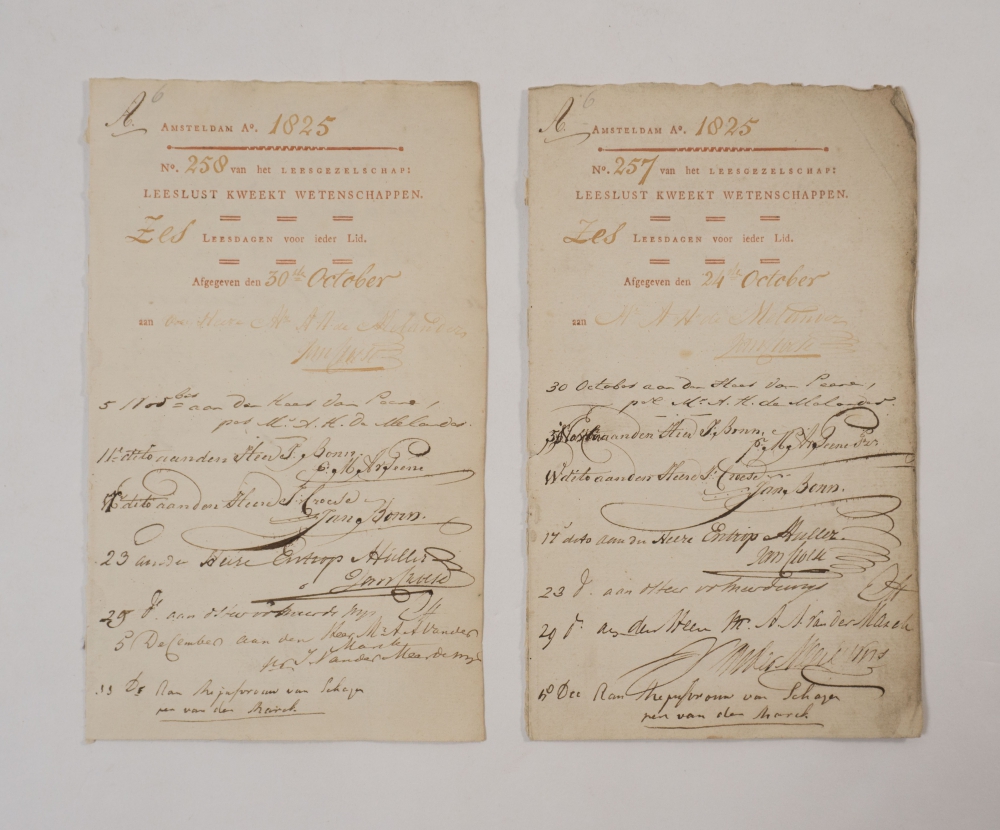 A. 6
AMSTELDAM Ao. 1825
No. 258 van het LEESGEZELSCHAP:
LEESLUST KWEEKT WETENSCHAPPEN.
Zes LEESDAGEN voor ieder Lid.
Afgegeven den 30ste October
aan den Heere Mr A H de Melander
Jan Croese
5 Novber aan den Heer Van Peene,
per Mr. A. H. de Melander.
11e dito aan den Heer P. Bonn.
dito aan den Heere Croese
Jan Bonn.
23 aan den Heere Entrop Muller
29 do aan
5 December aan den Heer Mr A A Vander
Marck
pr J. Vander
Dr Aan Mejufvrouw van Schagen
van der Marck
A. 6
AMSTELDAM Ao. 1825
No. 257 van het LEESGEZELSCHAP:
LEESLUST KWEEKT WETENSCHAPPEN.
Zes LEESDAGEN voor ieder Lid.
Afgegeven den 24de October
aan Mr A H de Melander
Jan Croese
30 October aan den Heer Van Peene,
per Mr. A. H. de Melander.
aan den Heer P. Bonn.
dito aan den Heere Croese
Jan Bonn.
17 dito aan den Heere Entrop Muller.
Jan Croese
23 do aan
29 do aan den Heer Mr. A A Van der Marck
Dec Aan Mejufvrouw van Schagen
van der Marck